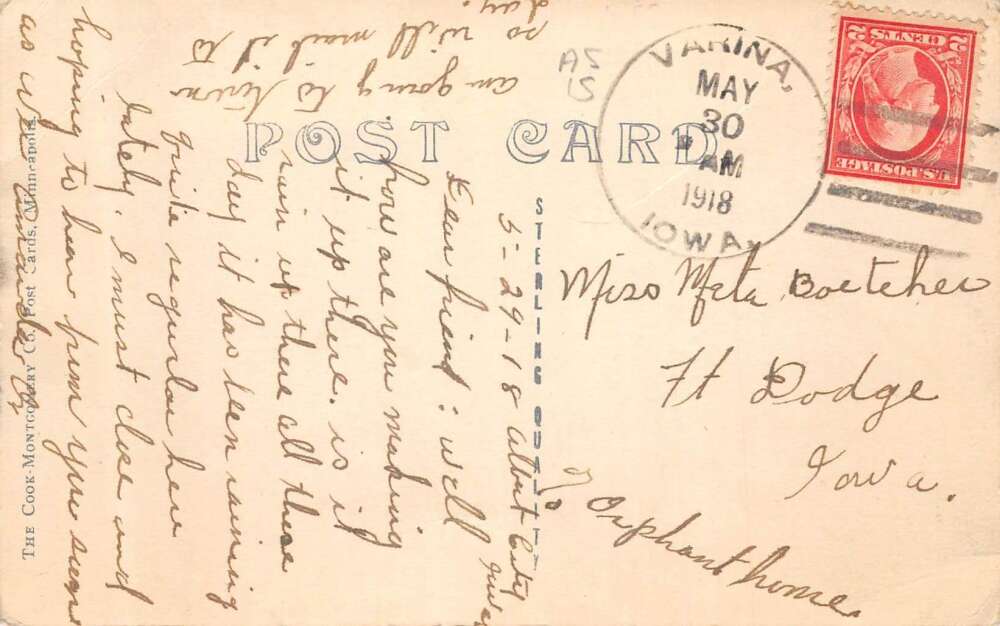 POST CARD
VARINA,
MAY
30
AM
1918
IOWA.
2 CENTS 2
U.S. POSTAGE
AS
IS
Miss Meta Boetcher
Ft Dodge
Iowa.
%
Orphant home
STERLING QUALITY
THE COOK-MONTGOMERY CO. Post Cards, Minneapolis.
5-29-18 Albert City
Iowa
Dear friend: well
how are you making
it up there. is it
rain up there all these
day it has been raining
quite regular here
lately. I must close and
hoping to hear from you soon
as
am going to town
so will mail it to
day.